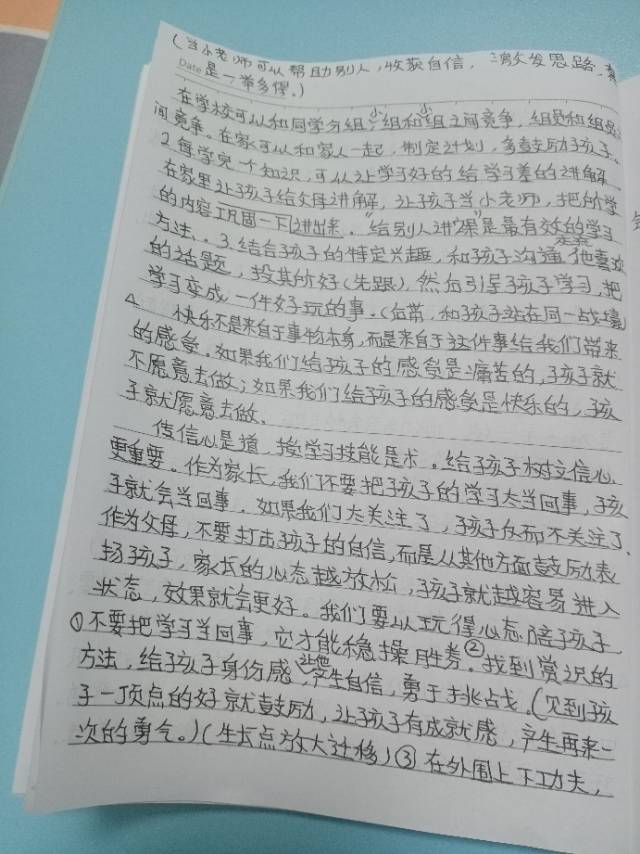 （当小老师可以帮助别人，收获自信，激发思路，真
Date是一举多得。）
在学校可以和同学分组，小组和小组之间竞争，组员和组员
间竞争。在家可以和家人一起，制定计划，多鼓励孩子。
2.每学完一个知识，可以让学习好的给学习差的讲解，
在家里让孩子给父母讲解，让孩子当小老师，把所学
的内容巩固一下讲出来。“给别人讲课”是最有效的学习
方法。3.结合孩子的特定兴趣，和孩子沟通他喜欢
的话题，投其所好（先跟），然后引导孩子学习，把
学习变成一件好玩的事。（后带，和孩子站在同一战壕
4.快乐不是来自于事物本身，而是来自于这件事给我们带来
的感觉。如果我们给孩子的感觉是痛苦的，孩子就
不愿意去做；如果我们给孩子的感觉是快乐的，孩
子就愿意去做、
传信心是道，授学习技能是术。给孩子树立信心
更重要。作为家长，我们不要把孩子的学习太当回事，孩
子就会当回事，如果我们太关注了，孩子反而不关注了、
作为父母，不要打击孩子的自信，而是从其他方面鼓励表
扬孩子，家长的心态越放松，孩子就越容易进入
状态，效果就会更好。我们要以玩得心态陪孩子，
①不要把学习当回事，它才能稳操胜券。②找到赏识的
方法，给孩子身份感，让他产生自信，勇于挑战。（见到孩
子一丁点的好就鼓励，让孩子有成就感，产生再来一
次的勇气。）（生长点放大迁移）③在外围上下功夫，